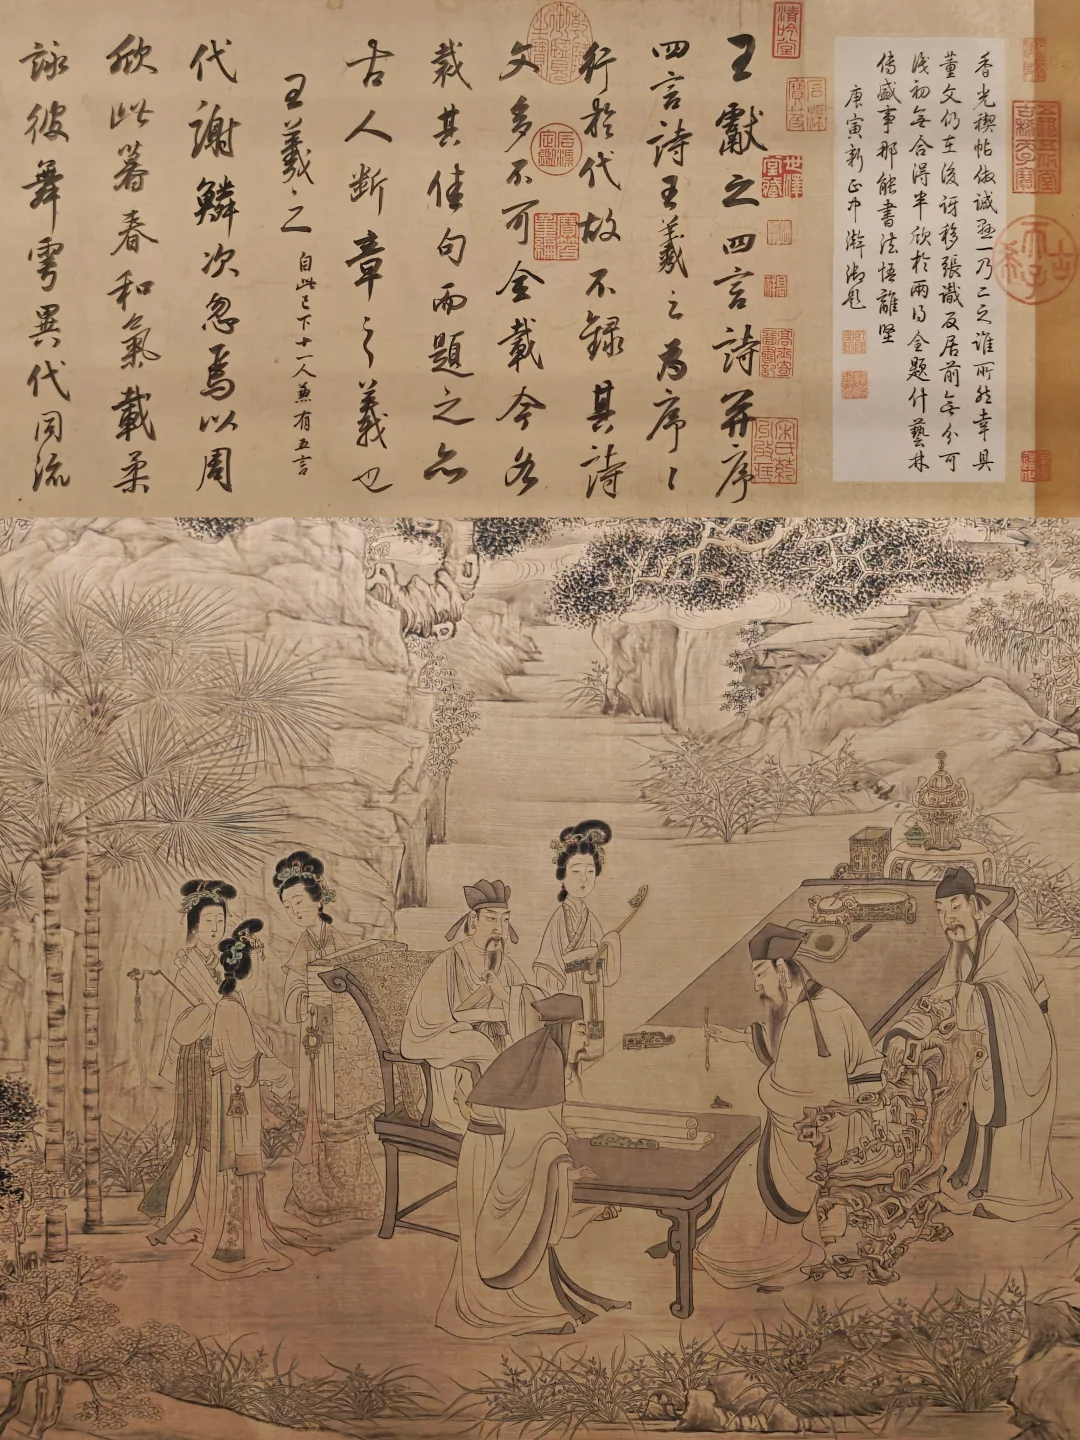 香光禊帖倣誠懸一乃二之誰所然幸具
董文仍在後訝移張識及居前無分可
淺初無合得半欣於兩得全題什藝林
傳盛事那能書法悟離堅
庚寅新正中澣御題
王獻之四言詩并序
四言詩王羲之為序序
行於代故不錄其詩
文多不可全載今各
裁其佳句而題之亦
古人斷章之義也
王羲之 自此已下十一人兼有五言
代謝鱗次忽焉以周
欣此暮春和氣載柔
詠彼舞雩異代同流